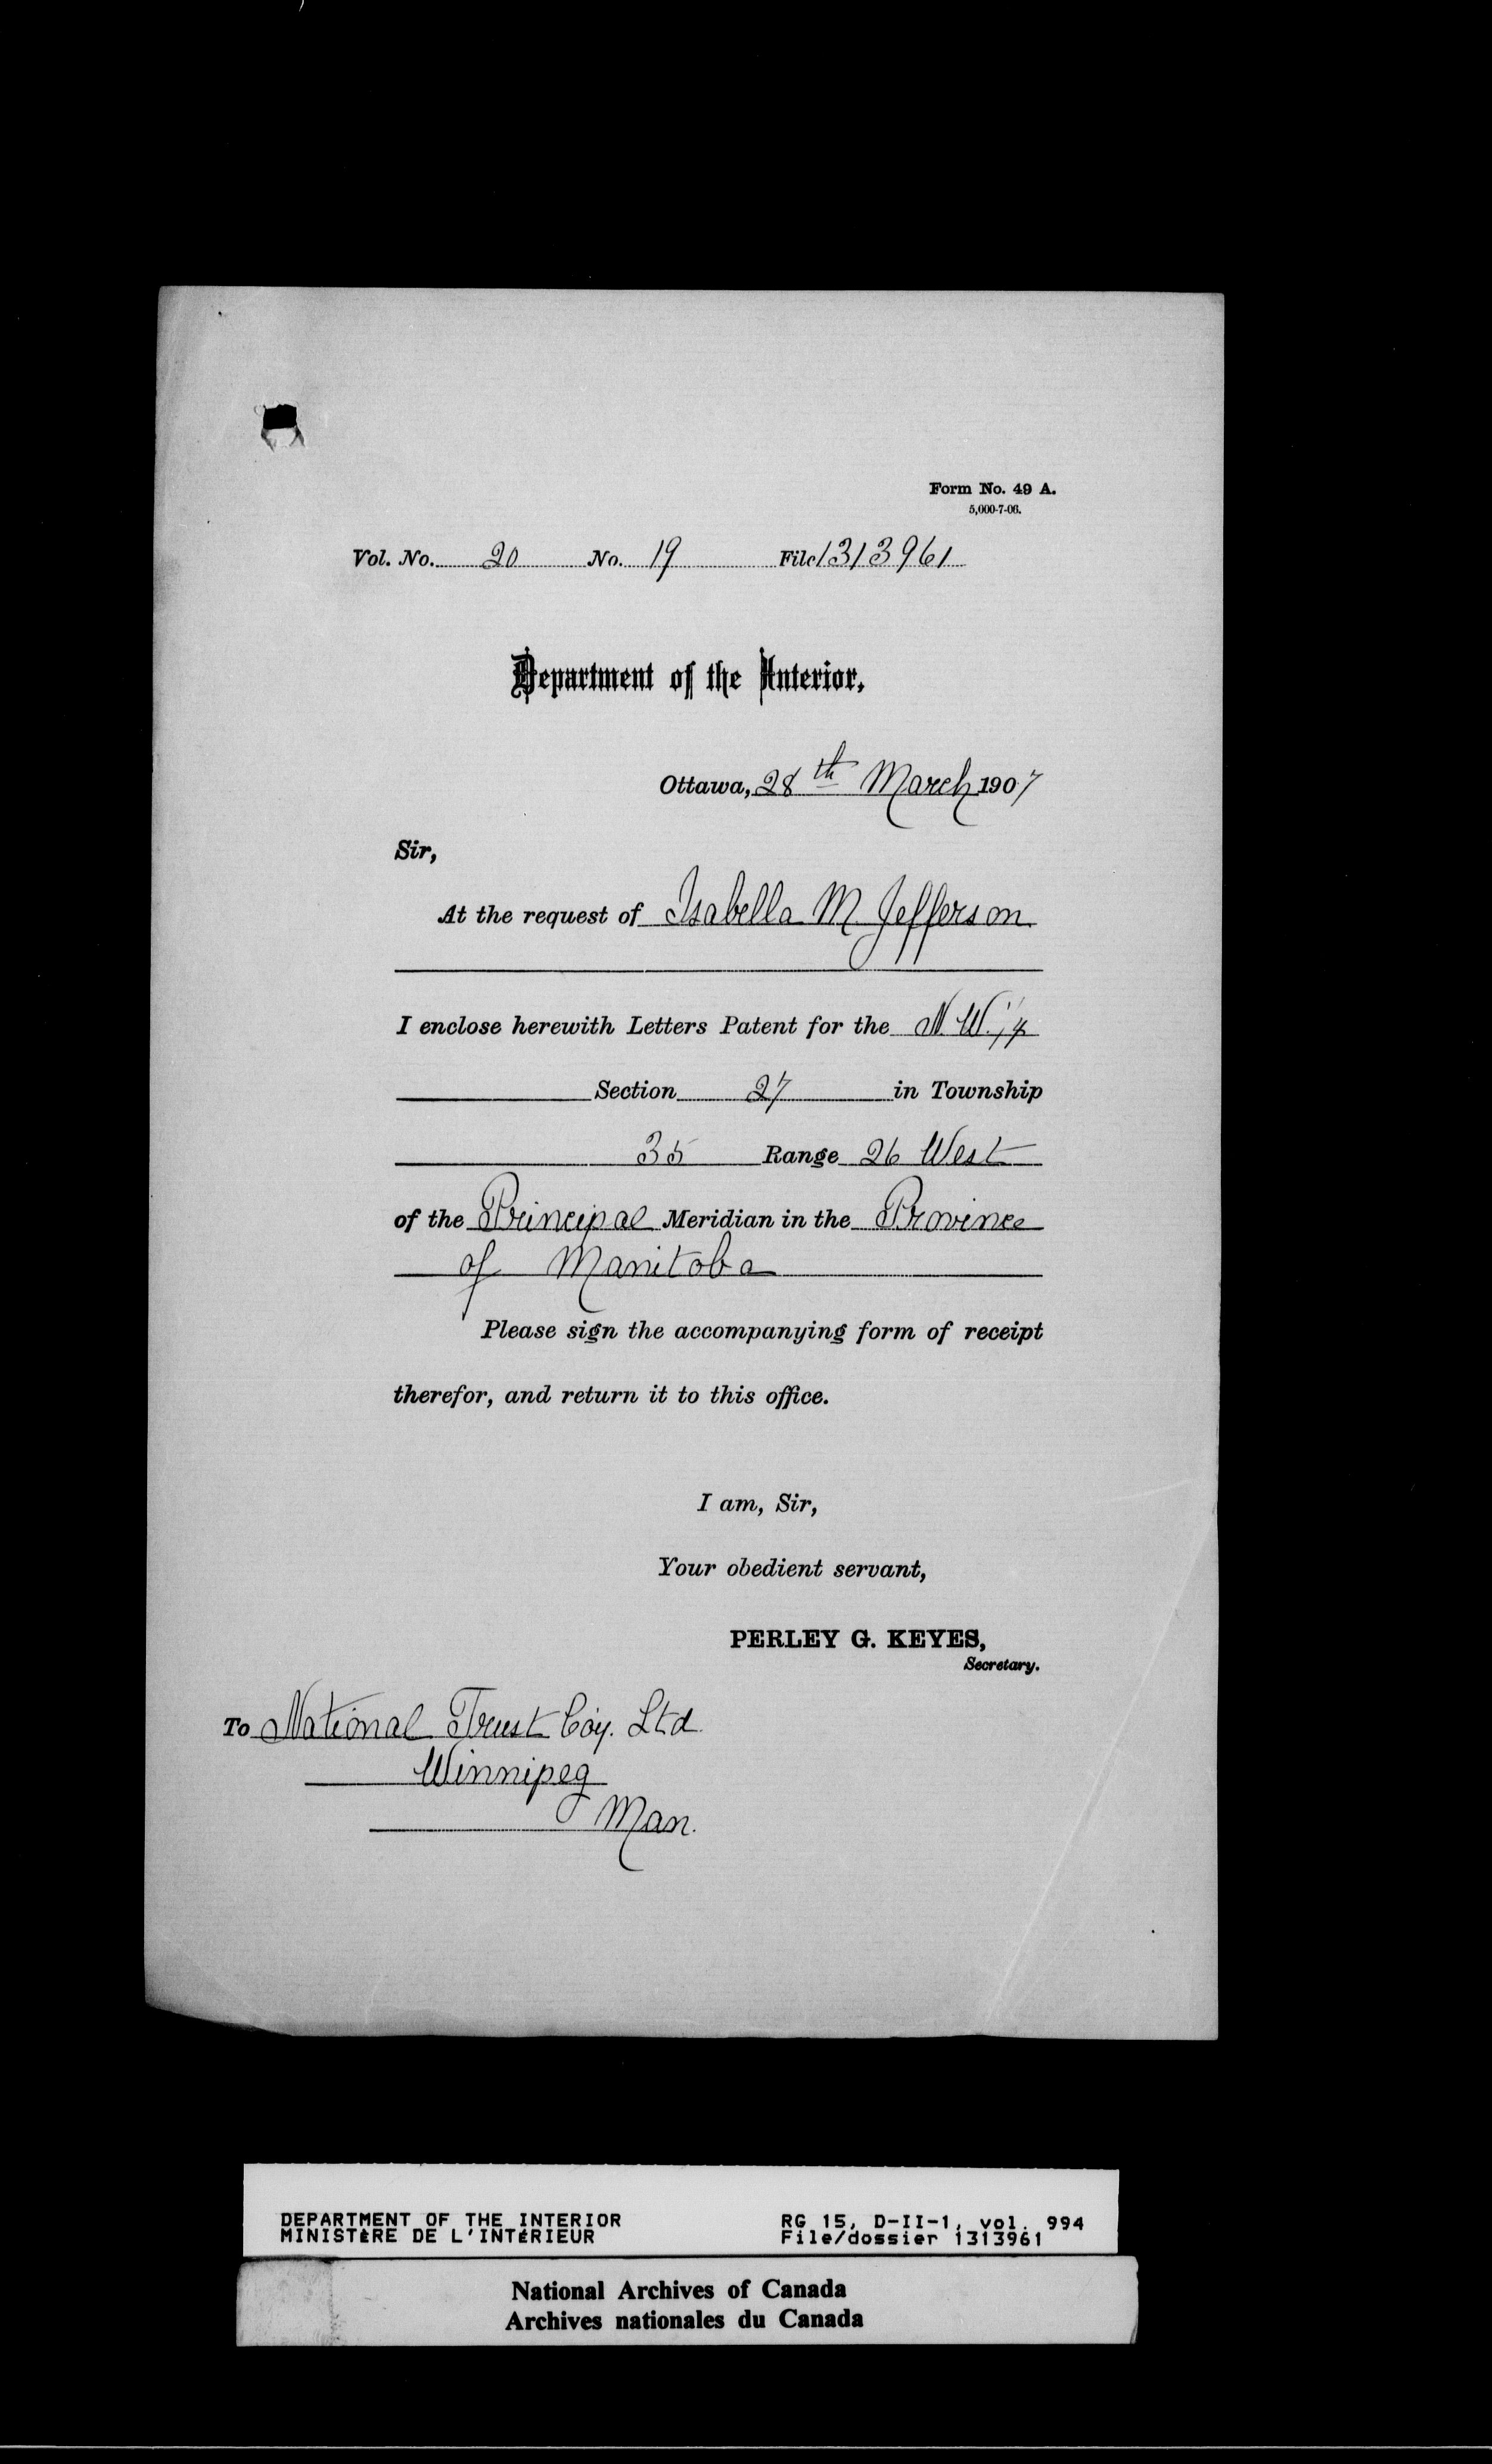 Form No. 49 A.
5,000-7-06.
Vol. No. 20 No. 19 File 1313961
Department of the Interior,
Ottawa, 28th March 1907
Sir,
At the request of Isabella M. Jefferson
I enclose herewith Letters Patent for the N.W. 1/4
Section 27 in Township
35 Range 26 West
of the Principal Meridian in the Province
of Manitoba
Please sign the accompanying form of receipt
therefor, and return it to this office.
I am, Sir,
Your obedient servant,
PERLEY G. KEYES,
Secretary.
To National Trust Coy. Ltd.
Winnipeg
Man.
DEPARTMENT OF THE INTERIOR RG 15, D-II-1, vol. 994
MINISTÈRE DE L'INTÉRIEUR File/dossier 1313961
National Archives of Canada
Archives nationales du Canada